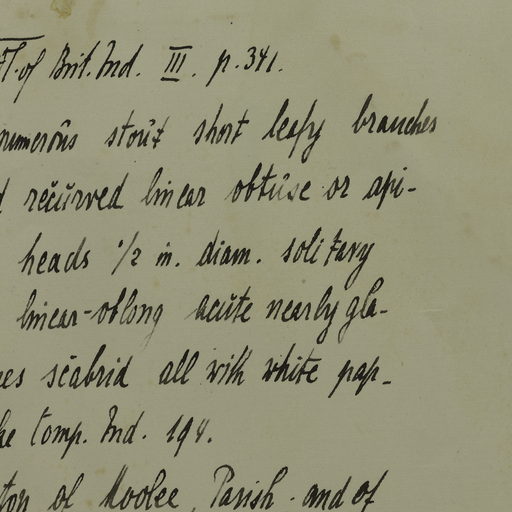 Fl. of Brit. Ind. III. p. 341.
numerous stout short leafy branches
recurved linear obtuse or api-
heads 1/2 in. diam. solitary
linear-oblong acute nearly gla-
scabrid all with white pap-
Comp. Ind. 194.
of Moolee, Parish. and of